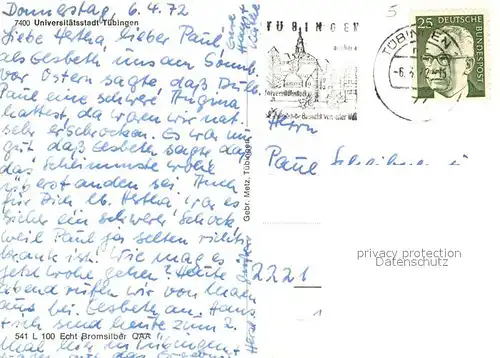 Donnerstag, 6.4.72
7400 Universitätsstadt Tübingen
Liebe Hertha, lieber Paul,
als Lisbeth uns am Sonnt.
vor Ostern sagte daß Du lb.
Paul eine schwere Angina
hattest, da waren wir nat.
sehr erschrocken. Es war nur
gut daß Lisbeth sagte daß
das Schlimmste wohl
überstanden sei. Auch
für Dich lb. Hertha war es
sicher ein schwerer Schock,
weil Paul ja selten richtig
krank ist. Wie mag es
jetzt wohl gehen? Heute
abend rufen wir von Mama
aus bei Lisbeth an. Hans
+ ich sind heute zum 2.
Mal hier in Tübingen +
541 L 100 Echt Bromsilber
Gebr. Metz, Tübingen
TÜBINGEN
Universitätsstadt
TÜBINGEN
-6.4.72-15
25
DEUTSCHE BUNDESPOST
5
Herrn
Paul
2221
1
privacy protection
Datenschutz